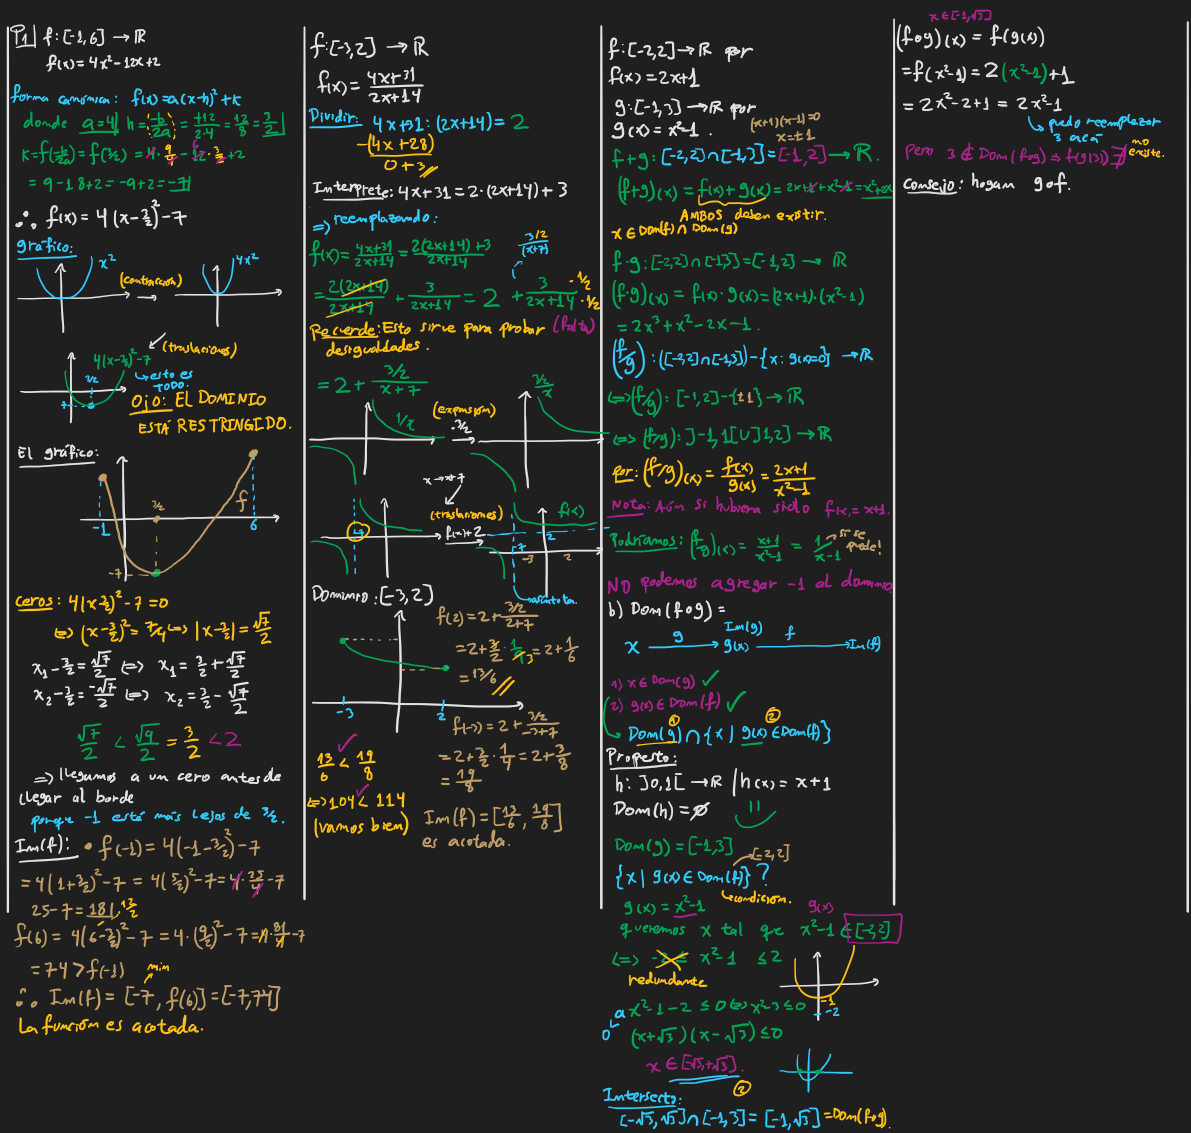 P1 f:[-1,6] → ℝ
f(x) = 4x²-12x+2
forma canónica: f(x)=a(x-h)²+k
donde a=4 h = -b/2a = +12/2·4 = 12/8 = 3/2
k=f(-b/2a) = f(3/2) = 4·9/4 - 12·3/2 + 2
= 9-18+2 = -9+2 = -7
∴ f(x) = 4(x-3/2)²-7
gráfico:
x²
(contracción)
4x²
(traslaciones)
4(x-3/2)²-7
3/2
-7
esto es TODO.
Ojo: EL DOMINIO
ESTÁ RESTRINGIDO.
El gráfico:
-1
3/2
f
6
-7
ceros: 4(x-3/2)²-7=0
⇔ (x-3/2)² = 7/4 ⇔ |x-3/2| = √7/2
x₁-3/2 = √7/2 ⇔ x₁ = 3/2 + √7/2
x₂-3/2 = -√7/2 ⇔ x₂ = 3/2 - √7/2
√7/2 < √9/2 = 3/2 < 2
⇒ llegamos a un cero antes de
llegar al borde
porque -1 está más lejos de 3/2.
Im(f): • f(-1) = 4(-1-3/2)²-7
= 4(1+3/2)²-7 = 4(5/2)²-7 = 4·25/4-7
25-7 = 18
f(6) = 4(6-3/2)²-7 = 4·(9/2)²-7 = 4·81/4-7
= 74 > f(-1)
min
∴ Im(f) = [-7, f(6)] = [-7,74]
La función es acotada.
f:[-3,2] → ℝ
f(x) = 4x+31/2x+14
Dividir: 4x+31 : (2x+14) = 2
-(4x+28)
0+3
Interprete: 4x+31 = 2·(2x+14)+3
⇒ reemplazando:
f(x) = 4x+31/2x+14 = 2(2x+14)+3/2x+14
3/2/(x+7)
= 2(2x+14)/2x+14 + 3/2x+14 = 2 + 3/2x+14 ·1/2/·1/2
Recuerde: Esto sirve para probar (falta)
desigualdades.
= 2 + 3/2/x+7
1/x
(expansión)
·3/2
3/2/x
x→x+7
(traslaciones)
f(x)+2
-7
f(x)
2
-7
-3
2
asíntota.
Dominio: [-3,2]
f(2) = 2 + 3/2/2+7
= 2+3/2·1/9 = 2+1/6
3
= 13/6
-3
2
f(-3) = 2 + 3/2/-3+7
= 2+3/2·1/4 = 2+3/8
= 19/8
13/6 < 19/8
⇔ 104 < 114
(vamos bien)
Im(f) = [13/6, 19/8]
es acotada.
f:[-2,2] → ℝ por
f(x) = 2x+1
g:[-1,3] → ℝ por
g(x) = x²-1.
(x+1)(x-1)=0
x=±1
f+g: [-2,2]∩[-1,3] = [-1,2] → ℝ.
(f+g)(x) = f(x)+g(x) = 2x+1+x²-1 = x²+2x
AMBOS deben existir.
x ∈ Dom(f) ∩ Dom(g)
f·g: [-2,2]∩[-1,3] = [-1,2] → ℝ
(f·g)(x) = f(x)·g(x) = (2x+1)·(x²-1)
= 2x³+x²-2x-1.
(f/g): ([-2,2]∩[-1,3])-{x: g(x)=0} → ℝ
⇔ (f/g): [-1,2]-{±1} → ℝ
⇔ (f/g): ]-1,1[ ∪ ]1,2] → ℝ
por: (f/g)(x) = f(x)/g(x) = 2x+1/x²-1
Nota: Aún si hubiera sido f(x)=x+1.
Podríamos: (f/g)(x) = x+1/x²-1 = 1/x-1
si se puede!
NO podemos agregar -1 al dominio
b) Dom(fog) =
x g Im(g) g(x) f Im(f)
1) x ∈ Dom(g) ✓
2) g(x) ∈ Dom(f) ✓
① ②
Dom(g) ∩ {x | g(x) ∈ Dom(f)}
Propuesto:
h: ]0,1[ → ℝ / h(x) = x+1
Dom(h) = ∅
Dom(g) = [-1,3]
[-2,2]
{x | g(x) ∈ Dom(f)} ?
condición.
g(x) = x²-1
g(x)
queremos x tal que x²-1 ∈ [-2,2]
⇔ -2 ≤ x²-1 ≤ 2
redundante
-1
-2
a x²-1-2 ≤ 0 ⇔ x²-3 ≤ 0
0
(x+√3)(x-√3) ≤ 0
x ∈ [-√3,+√3].
②
Intersecto:
[-√3,√3]∩[-1,3] = [-1,√3] = Dom(fog).
x ∈ [-1,√3]
(fog)(x) = f(g(x))
= f(x²-1) = 2(x²-1)+1
= 2x²-2+1 = 2x²-1
puedo reemplazar
3 acá
pero 3 ∉ Dom(fog) ⇒ f(g(3)) ∄ no existe.
Consejo: hagan gof.